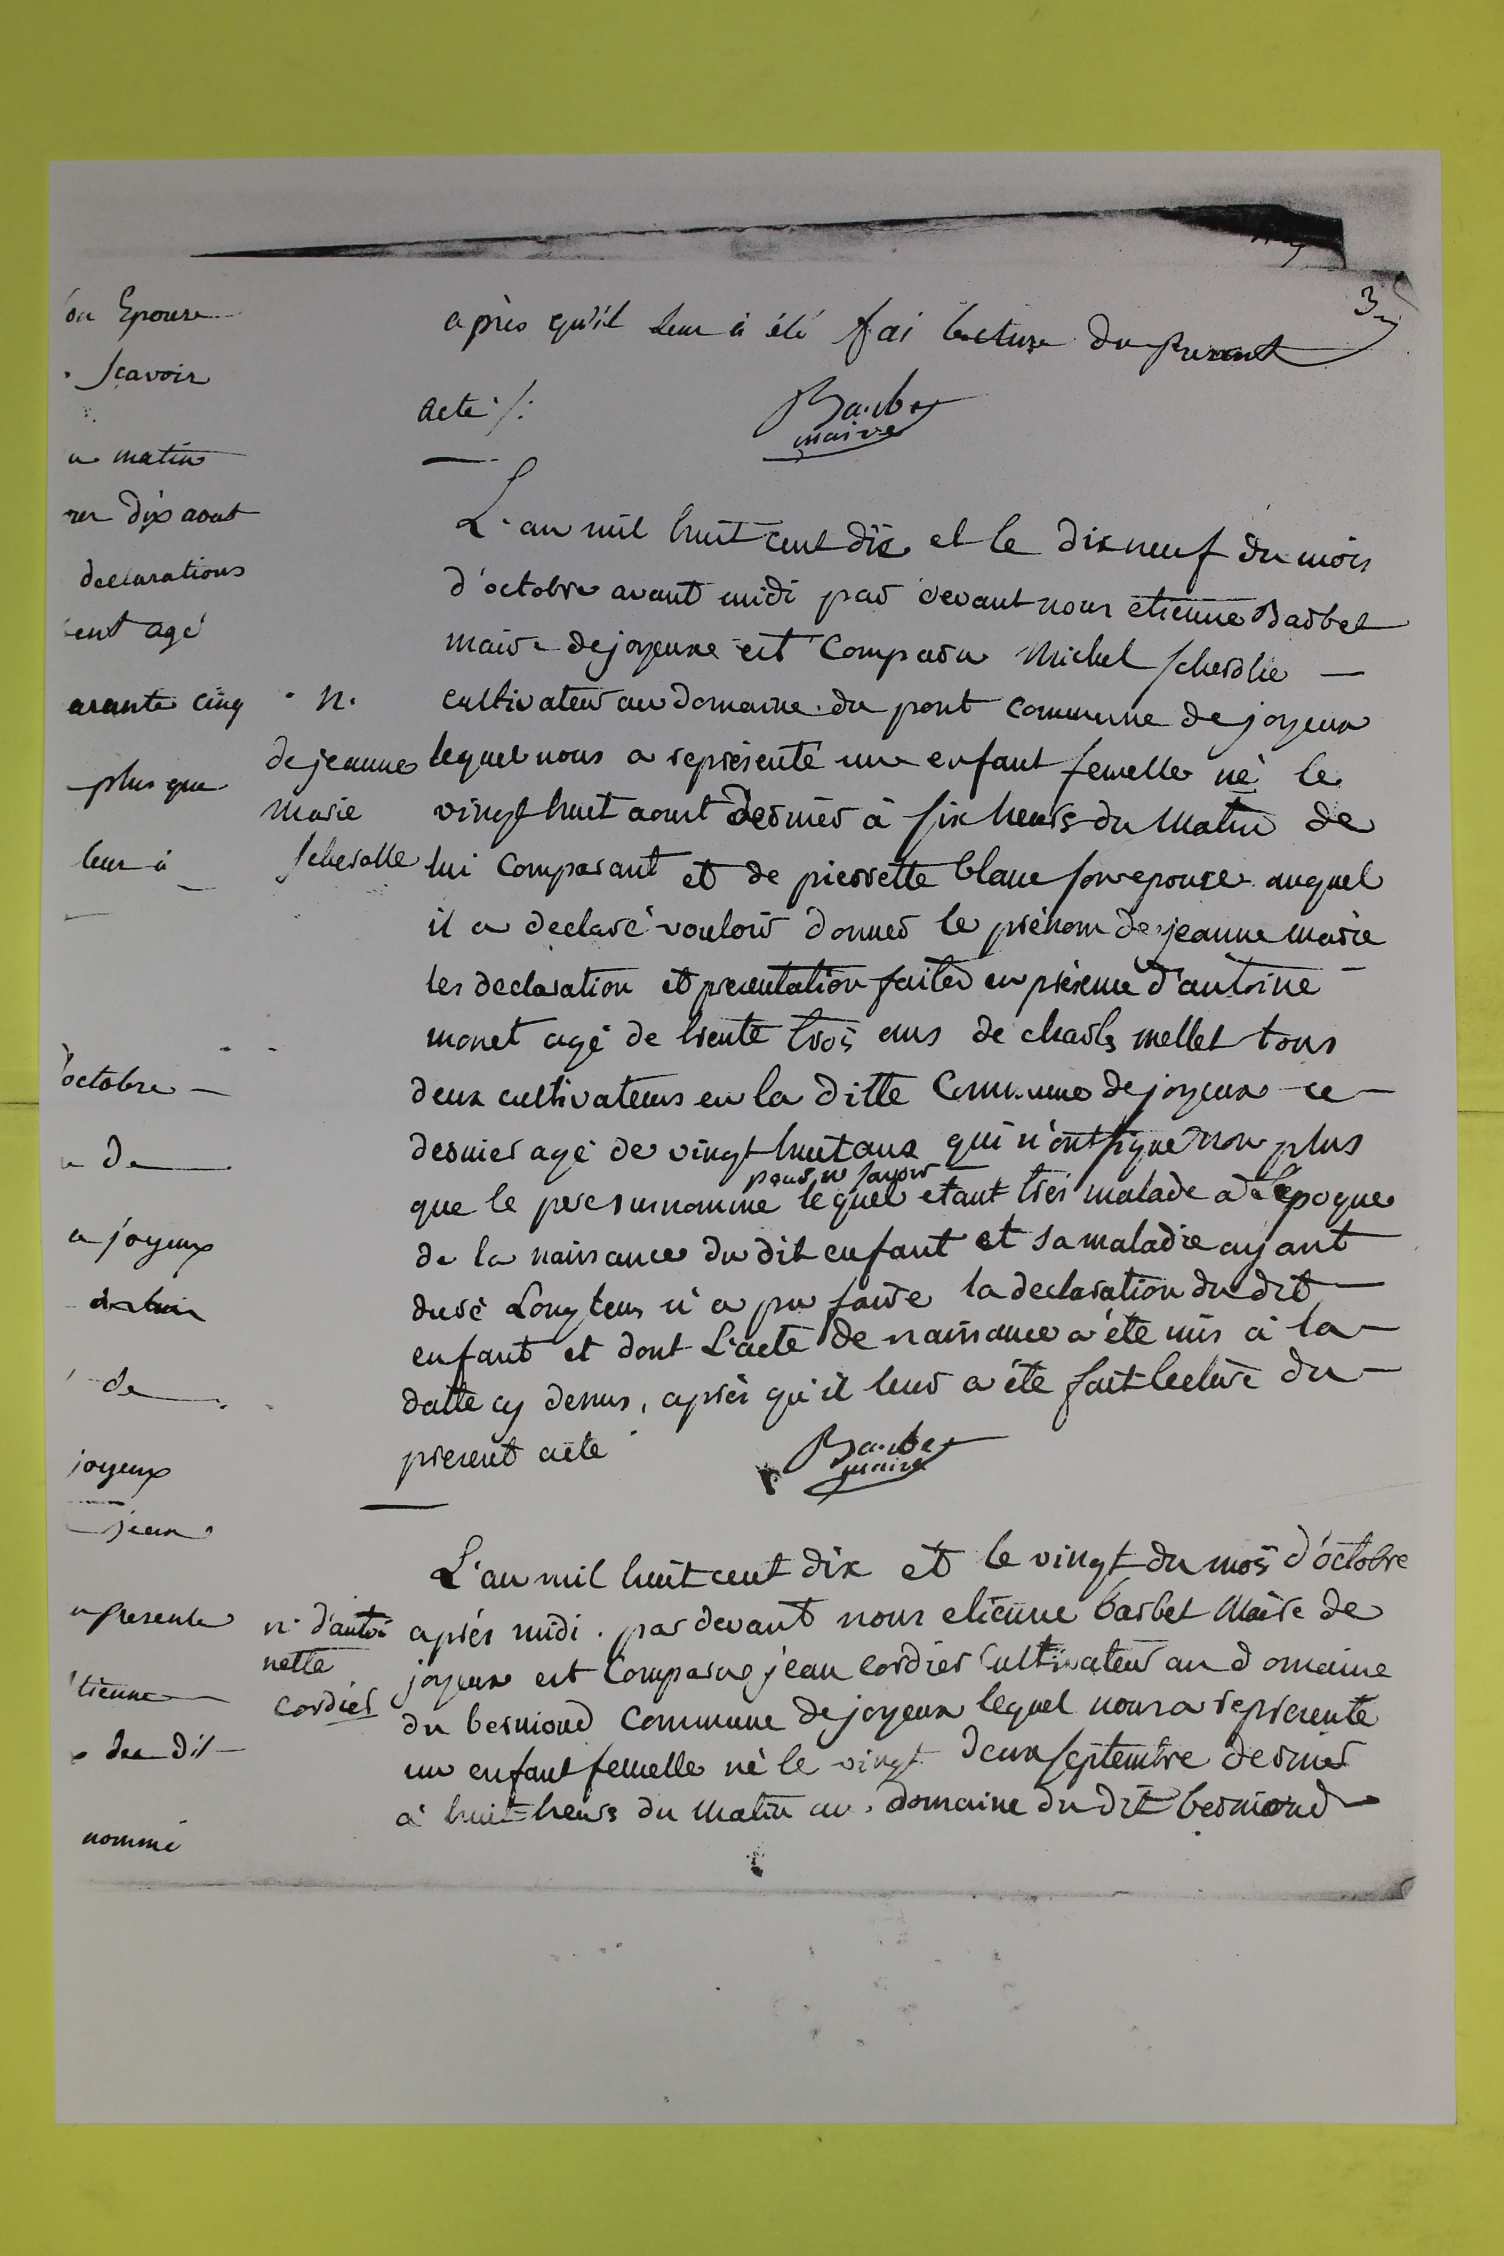 on Epouse
scavoir
matin
dix aout
declarations
ent agé
arante cinq
plus que
leur à
octobre
de
a joyeux
de
joyeux
jean
presente
tienne
du dit
nommé
3
après qu'il leur à été fai lecture du present
acte ./.
Barbet
maire
n.
de jeanne
marie
scherolle
L'an mil huit cent dix et le dix neuf du mois
d'octobre avant midi par devant nous etienne Barbet
maire de joyeux est Comparu Michel scherolle
cultivateur au domaine du pont Commune de joyeux
lequel nous a représenté un enfant femelle né le
vingt huit aout dernier à six heurs du matin de
lui Comparant et de pierrette blanc son epouse auquel
il a declaré vouloir donner le prénom de jeanne marie
les declaration et presentation faites en présence d'antoine
monet agé de trente trois ans de charls mellet tous
deux cultivateurs en la ditte Commune de joyeux ce
dernier agé de vingt huit ans qui n'ont signé non plus
que le pere surnommé pour ne savoir lequel etant très malade a l'epoque
de la naissance du dit enfant et sa maladie ayant
duré Longtems n'a pu faire la declaration du dit
enfant et dont L'acte de naissance a été mis à la
datte cy dessus, après qu'il leur a été fait lecture du
present acte
Barbet
maire
n. d'antoi
nette
cordier
L'an mil huit cent dix et le vingt du mois d'octobre
après midi. par devant nous etienne barbet Maire de
joyeux est Comparu jean cordier Cultivateur au domaine
du bermond Commune de joyeux lequel nous a représenté
un enfant femelle né le vingt deux septembre dernier
à huit heurs du matin au domaine du dit bermond